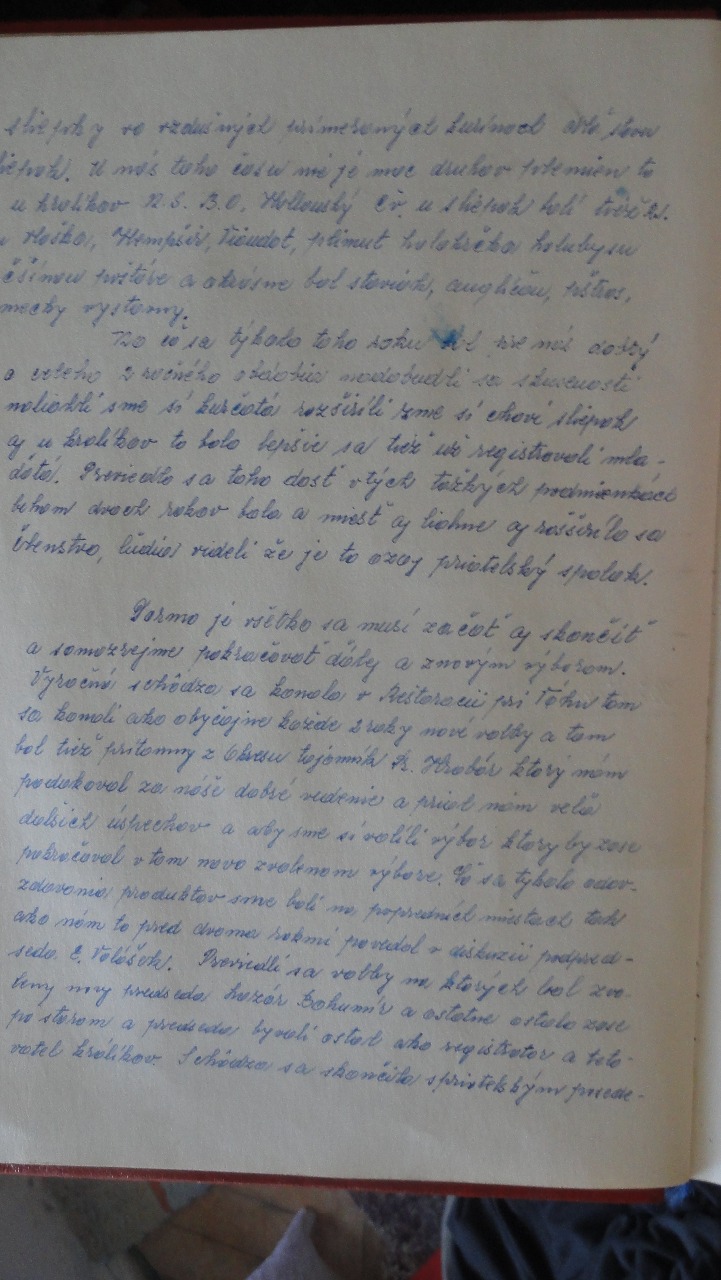 sliepky vo vzdušných primeraných kurínoch dlá stavu
sliepok. U nás toho času nie je moc druhov plemien to
u králikov N.S. B.O, Hollanský Čv. u sliepok boli tiež Rs.
Vlaška, Hempšir, Viandot, plimut holokrčka holuby su
čšinou poštáre a okrasne bol staviak, angličan, pštros,
mecky vystavny.
No čo sa týkalo toho roku bol pre nás dobrý
a celeho 2 ročného obdobia nadobudli sa skusenosti
naliahli sme si kurčatá rozšírili zme si chovi sliepok
aj u kralikov to bolo lepšie sa tiež už registrovali mla-
dáta. Previedlo sa toho dosť v tých tažkých podmienkách
behom dvoch rokov bola a miesť aj liahne aj rozširílo sa
členstvo, ludia videli že je to ozaj priatelský spolok.
Darmo je všetko sa musí začať aj skončiť
a samozrejme pokračovať ďalej a znovým výborom.
Vyročná schôdza sa konala v Reštaracii pri Váhu tam
sa konali ako obyčajne každe 2 roky nové volby a tam
bol tiež pritomny z Okresu tajomník R. Hrabár ktorý nám
podakoval za náše dobré vedenie a prial nám vela
dalšich úspechov a aby sme si volili výbor ktory by zase
pokračoval v tom novo zvolenom výbore. Čo sa tykalo odov-
zdavania produktov sme boli na popredních miestach tak
ako nám to pred dvoma rokmi povedal v diskuzii podpred-
seda E. Valášek. Previedli sa volby na ktorých bol zvo-
leny novy predseda Lazár Bohumír a ostatne ostalo zase
po starom a predseda byvali ostal ako registrator a teto-
vatel králikov. Schôdza sa skončila spriatelským posede-